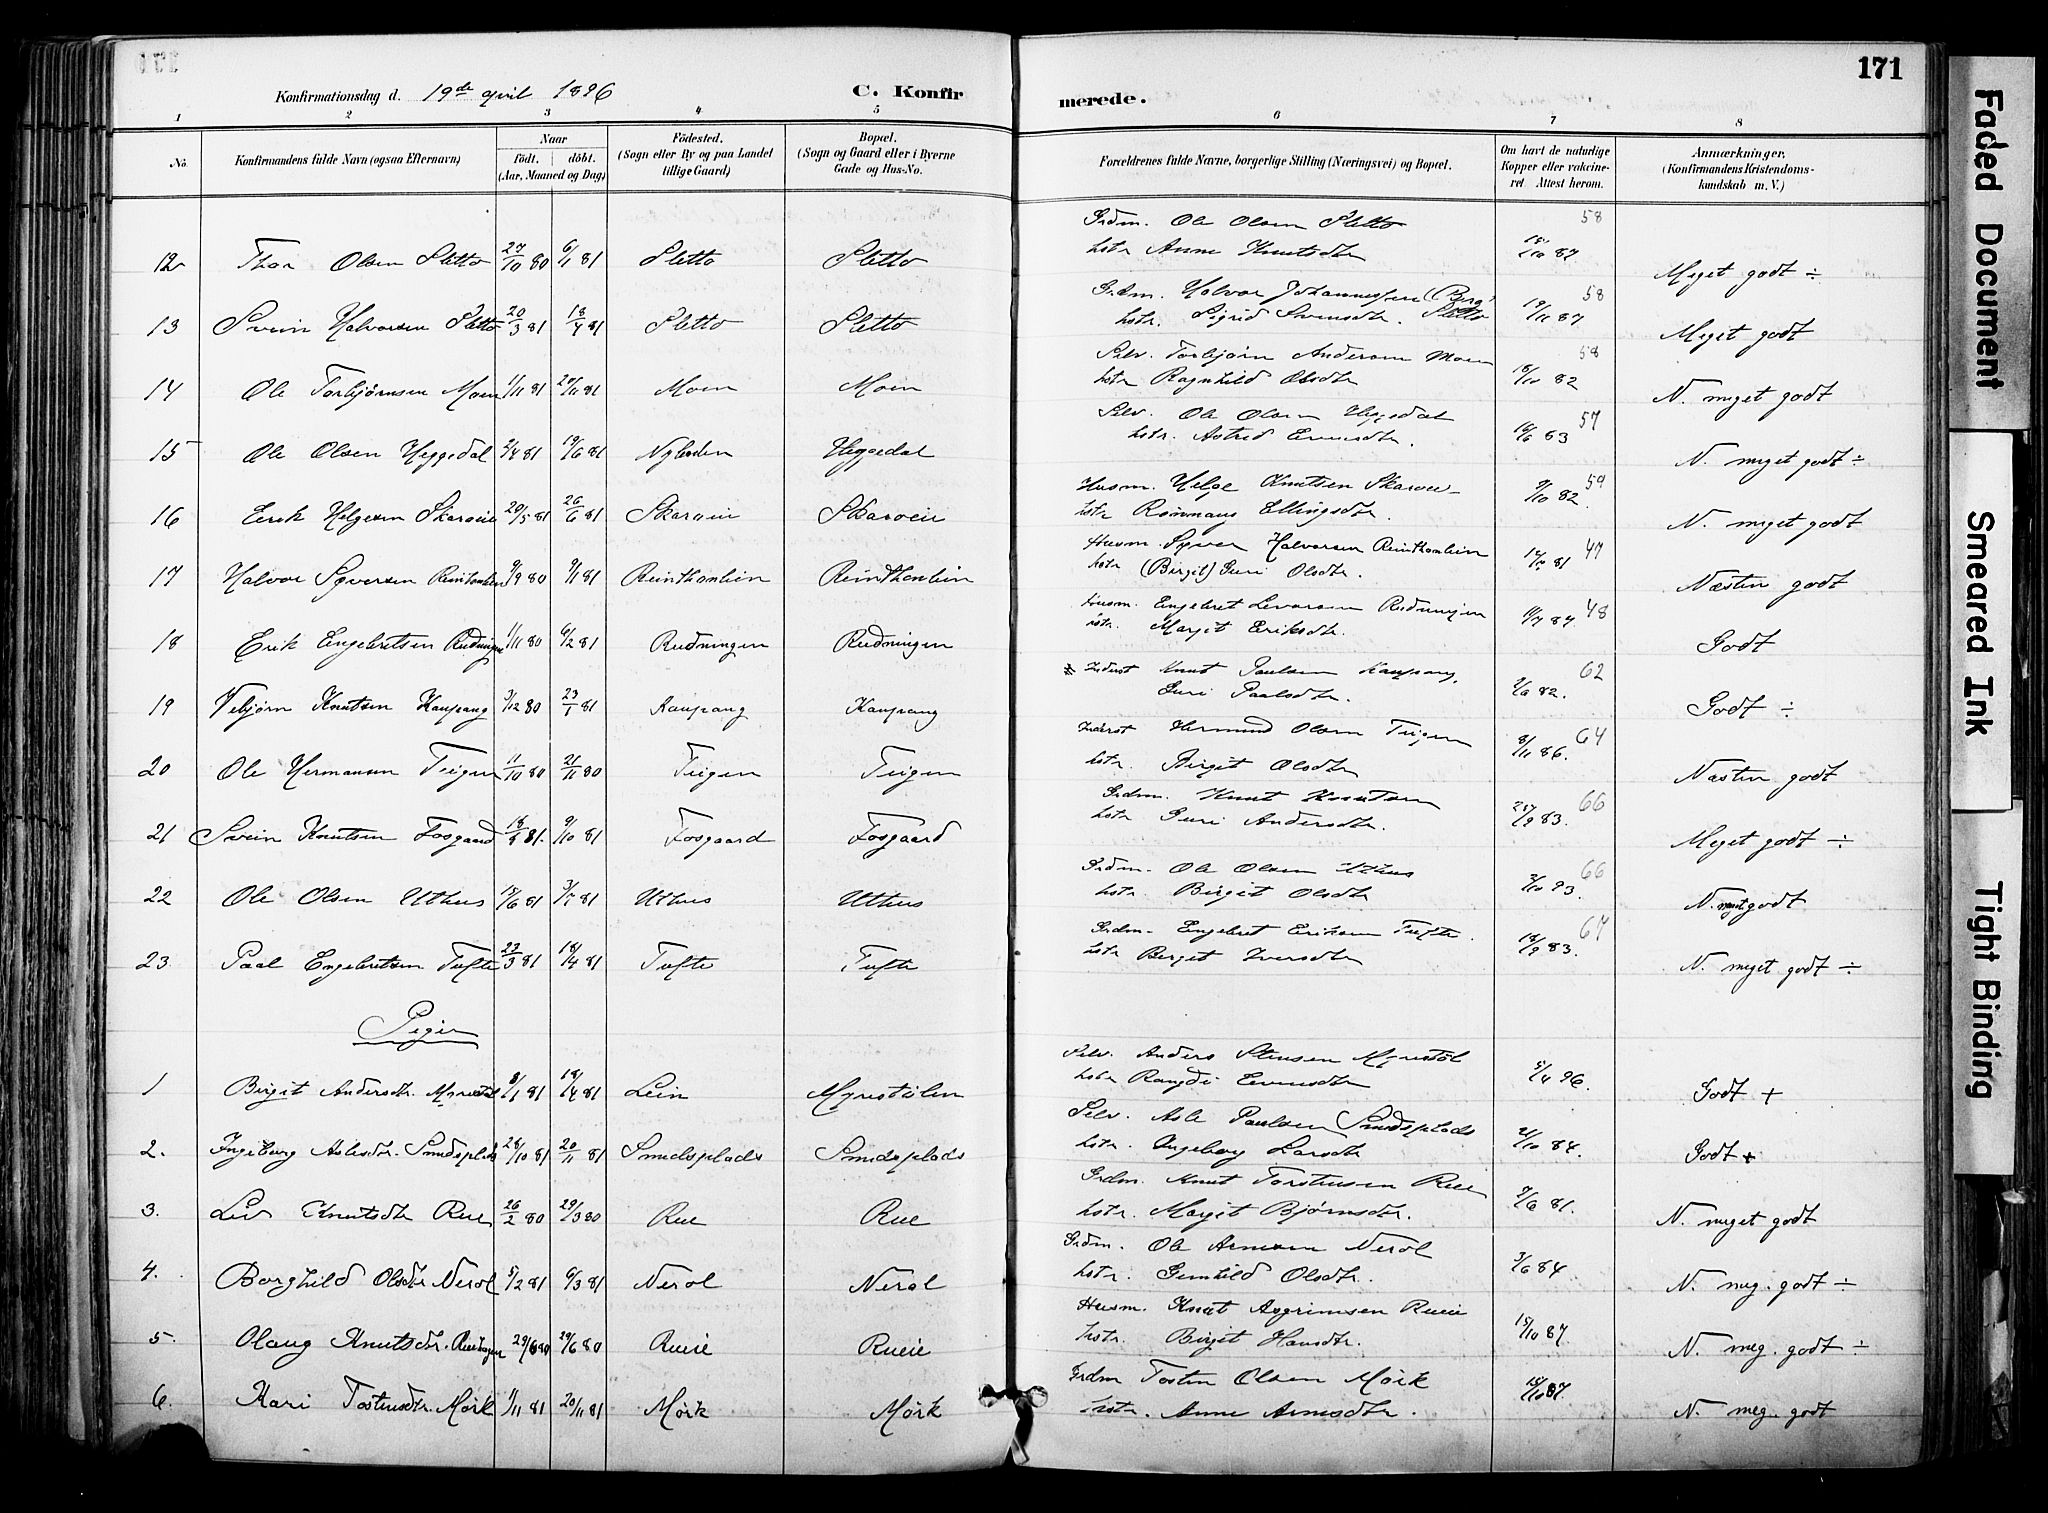 171
Konfirmationsdag d. 19de april 1896 C. Konfirmerede.
1 2 3 4 5 6 7 8
No. Konfirmandens fulde Navn (ogsaa Efternavn) Naar født. døbt. (Aar, Maaned og Dag) Fødested. (Sogn eller By og paa Landet tillige Gaard) Bopæl. (Sogn og Gaard eller i Byerne Gade og Hus-No. Forældrenes fulde Navne, borgerlige Stilling (Næringsvei) og Bopæl. Om havt de naturlige Kopper eller vakcineret Attest herom. Anmærkninger. (Konfirmandens Kristendomskundskab m. V.)
Grdm. Ole Olsen Sletto 58
12 Thor Olsen Sletto 27/10 80 6/1 81 Sletto Sletto hstr Anne Knutsdtr Meget godt ÷
Grdm. Halvor Johannessen (Berg) 58
13 Svein Halvorsen Sletto 20/3 81 18/4 81 Sletto Sletto hstr. Sigrid Svensdtr. Sletto 19/11 87 Meget godt
Selv. Torbjørn Andersen Moen 58
14 Ole Torbjørnsen Moen 1/11 81 20/11 81 Moen Moen hstr Ragnhild Olsdtr 18/10 82 N. meget godt
Selv. Ole Olsen Heggedal 57
15 Ole Olsen Heggedal 2/4 81 19/6 81 Heggedal hstr. Astrid Evensdtr. N. meget godt ÷
Husm. Helge Knutsen Skaroeie 59
16 Erik Helgesen Skaroeie 20/5 81 26/6 81 Skaroeie Skaroeie hstr Rønnaug Ellingsdtr. 9/10 82 N. meget godt
Husm. Syver Halvorsen Reinthonlien 47
17 Halvor Syversen Reintonlien 9/9 80 9/1 81 Reinthonlien Reinthonlien hstr (Birgit) Guri Olsdtr. Næsten godt
Husm. Engebret Levorsen Rudningen 48
18 Erik Engebretsen Rudningen 1/11 80 6/2 81 Rudningen Rudningen hstr. Margit Eriksdtr. Godt
Inderst Knut Paulsen Kaupang, 62
19 Vebjørn Knutsen Kaupang 3/12 80 23/1 81 Kaupang Kaupang Guri Paalsdtr. 2/6 82. Godt ÷
Inderst Hermund Olsen Teigen 64
20 Ole Hermansen Teigen 11/10 80 21/11 80 Teigen Teigen hstr. Birgit Olsdtr 8/11 86. Næsten godt
Grdm. Knut Knutsen 66
21 Svein Knutsen Fosgaard Fosgaard Fosgaard hstr Guri Andersdtr. Meget godt ÷
Grdm. Ole Olsen Uthus 66
22 Ole Olsen Uthus Uthus Uthus hstr. Birgit Olsdtr N. meget godt
Grdm. Engebret Eriksen Tufte. 67
23. Paal Engebretsen Tufte 23/3 81 18/4 81 Tufte Tufte hstr Berget Iversdtr 18/9 83. N. meget godt ÷
Piger
Selv. Anders Stensen Myrestøl
1 Birgit Andersdtr. Myrestøl 9/1 81 18/4 81 Lein Myrestølen hstr Rangdi Evensdtr 5/4 96. Godt +
Selv. Asle Paulsen Smedsplads
2. Ingeborg Aslesdtr. Smedsplads 28/10 81 20/11 81 Smedsplads Smedsplads hstr. Ingeborg Larsdtr 2/10 84. Godt +
Grdm. Knut Torstensen Rue
3. Liv Knutsdtr Rue 26/2 80 29/3 80 Rue Rue hstr. Margit Bjørnsdtr. 9/6 81. N. meget godt
Grdm. Ole Arnesen Nerol
4. Borghild Olsdtr Nerol 5/2 81 6/3 81 Nerol Nerol hstr. Gunhild Olsdtr. 3/6 84 N. meg. godt ÷
Husm. Knut Asgrimsen Rueie
5. Olaug Knutsdtr. 29/6 80 Rueie Rueie hstr. Birgit Hansdtr. 15/10 87. N. meg. godt ÷
Grdm Tosten Olsen Mørk
6. Kari Tostensdtr. Mørk 1/11 81 20/11 81 Mørk Mørk hstr. Anne Arnesdtr. 18/10 87. N. meg. godt
Faded Document
Smeared Ink
Tight Binding